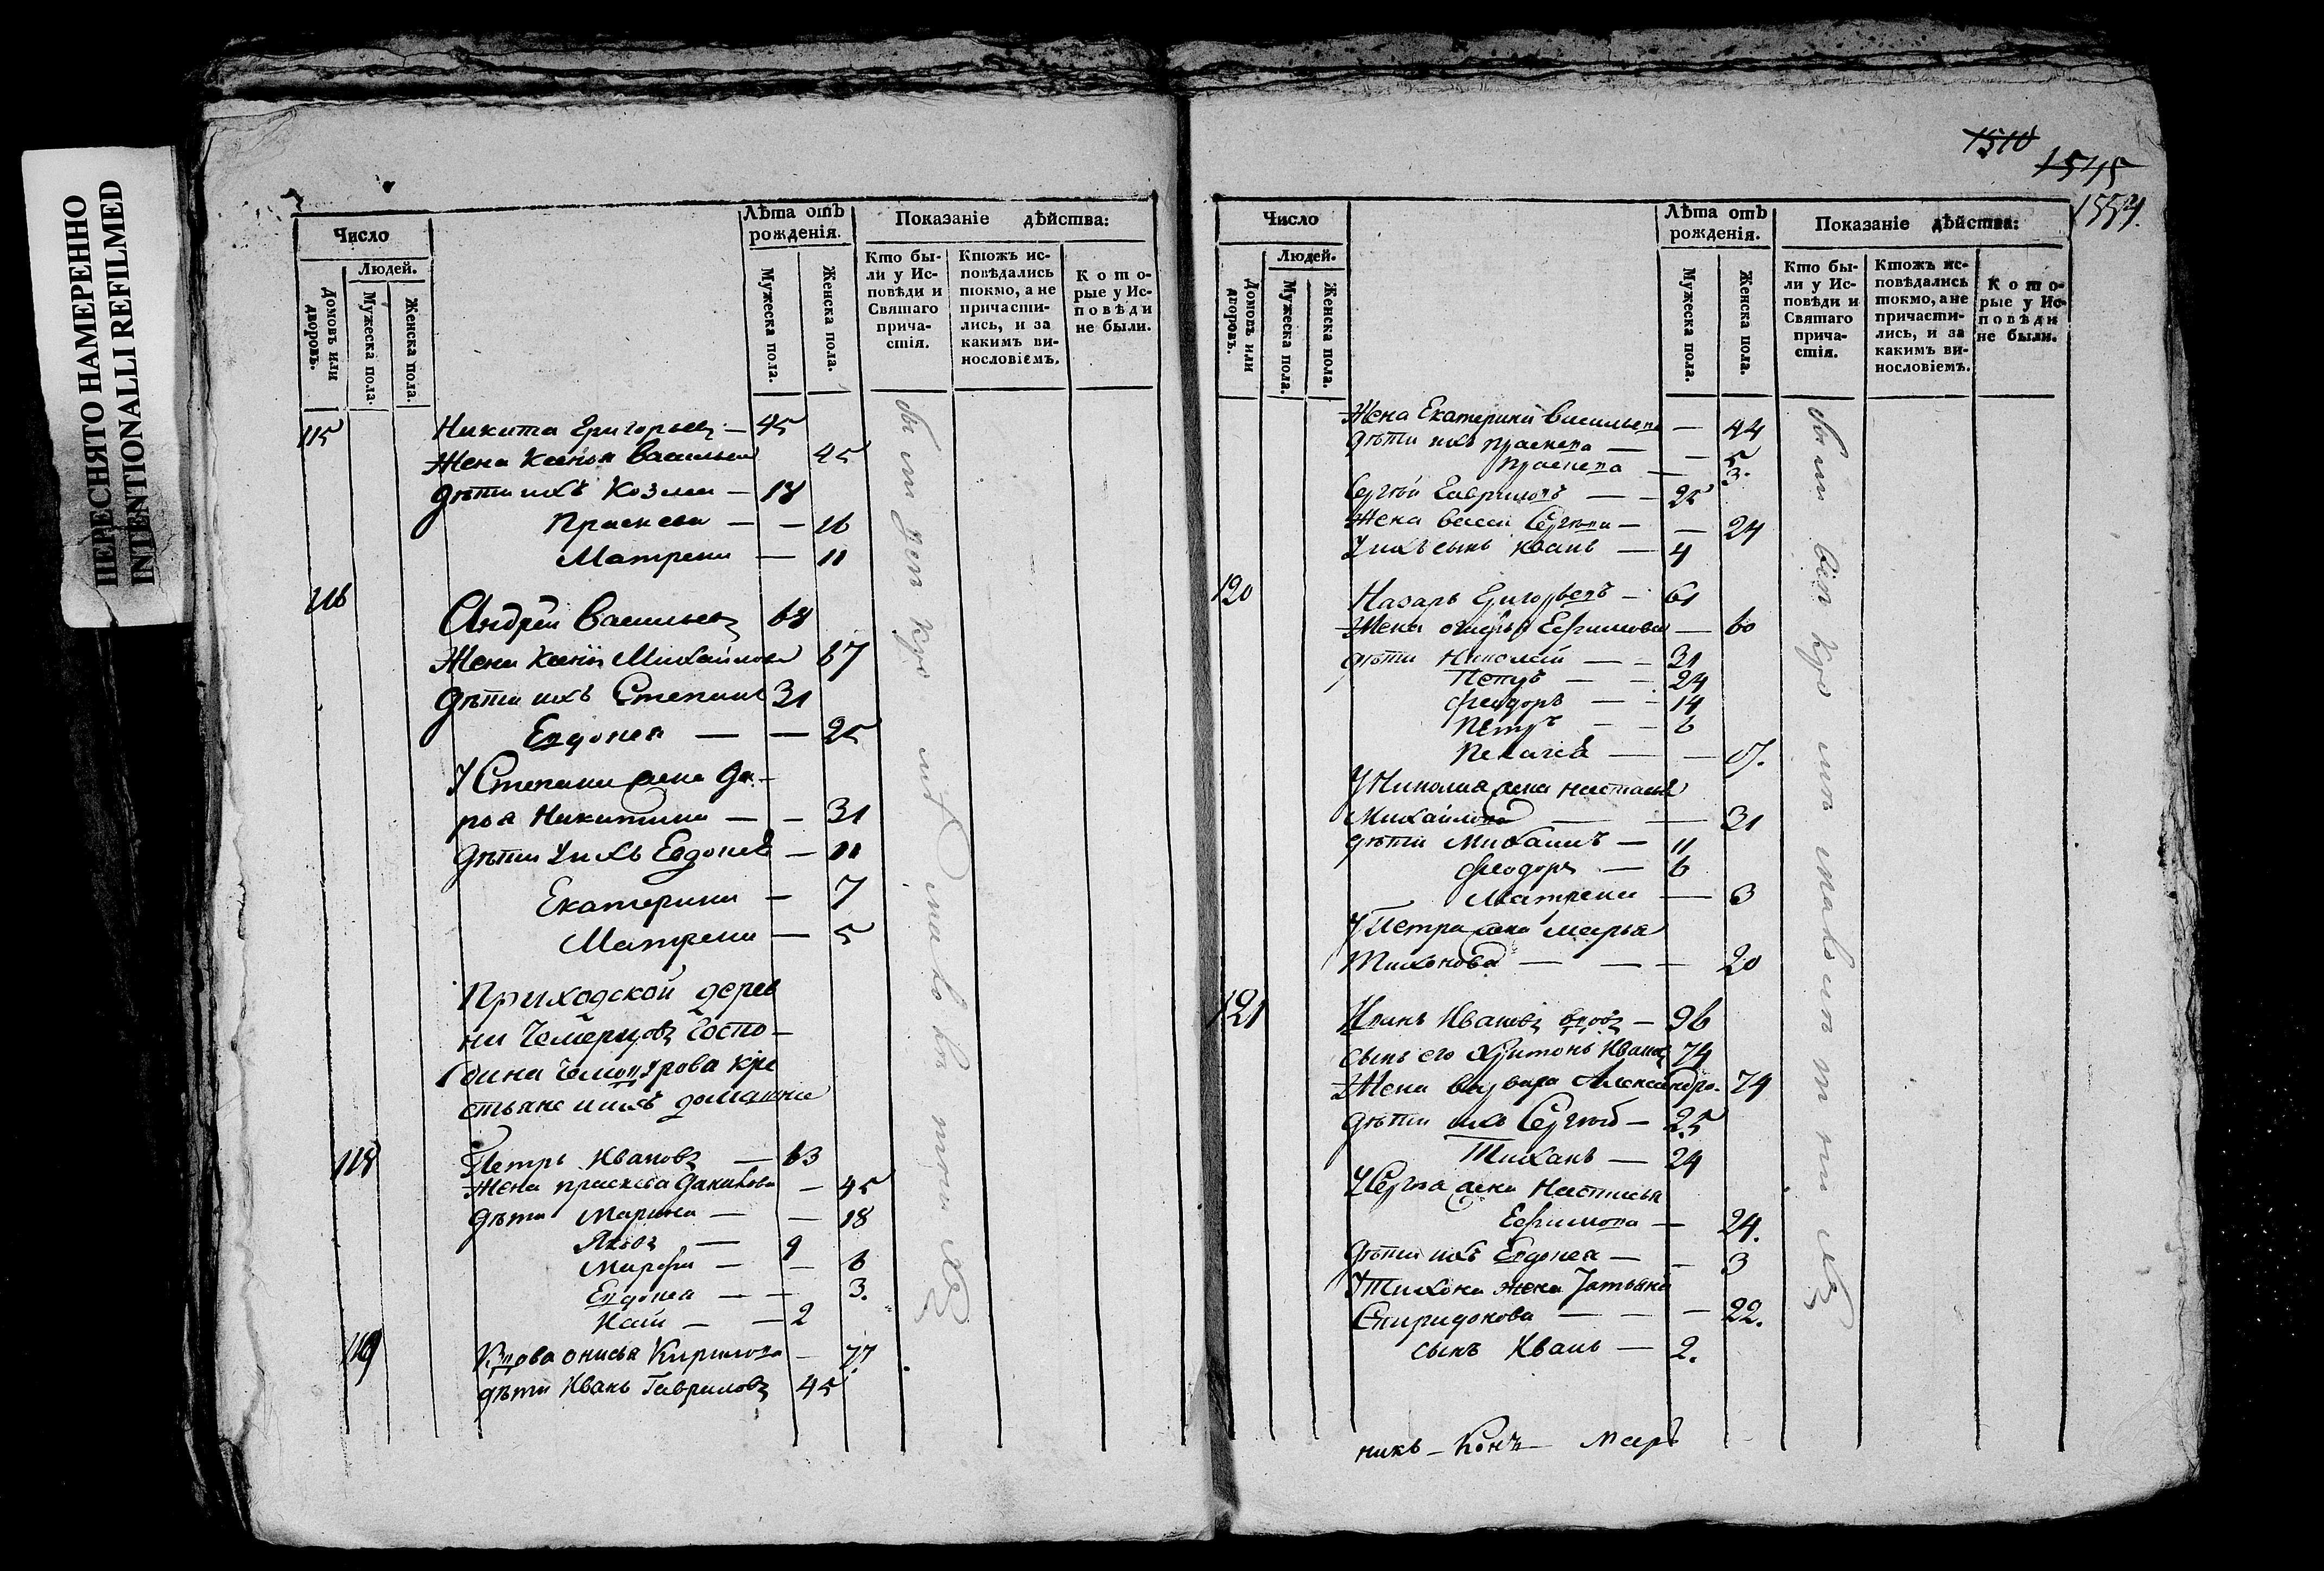 ПЕРЕСНЯТО НАМЕРЕННО
INTENTIONALLI REFILMED
Число
Лѣта отъ рожденія.
Показаніе дѣйства:
Домовъ или дворовъ.
Людей.
Мужеска пола.
Женска пола.
Мужеска пола.
Женска пола.
Кто бы-
ли у Ис-
повѣди и
Святаго
прича-
стія.
Ктожъ ис-
повѣдались
токмо, а не
причасти-
лись, и за
какимъ ви-
нословіемъ.
К о т о-
рые у Ис-
п о в ѣ д и
не были.
115 Никита Григорьевъ — 45
Жена Ксенья Васильева 45
дѣти ихъ Козма — 18
Праскева — — 16
Матрена — 11
116 Андрей Васильевъ 68
Жена Ксенія Михайлова 67
дѣти ихъ Степанъ 31
Евдокея — — 25
У Степана жена Да-
рья Никитина — — 31
дѣти у ихъ Евдокея — 11
Екатерина — 7
Матрена — 5
Приходской дерев
ни Чемерцовъ Госпо-
дина кре
стьяне ихъ домашни
118 Петръ Ивановъ — 63
Жена праскева — 45
дѣти Марина — — 18
Яковъ — 9
Марфа — — 6
Евдокея — — 3.
— — 2
119 Вдова онисья Кирилова — 77.
дѣти Иванъ Гавриловъ 45
1510
1545
1554.
Число
Лѣта отъ рожденія.
Показаніе дѣйства:
Домовъ или дворовъ.
Людей.
Мужеска пола.
Женска пола.
Мужеска пола.
Женска пола.
Кто бы-
ли у Ис-
повѣди и
Святаго
прича-
стія.
Ктожъ ис-
повѣдались
токмо, а не
причасти-
лись, и за
какимъ ви-
нословіемъ.
К о т о-
рые у Ис-
п о в ѣ д и
не были.
Жена Екатерина Васильева — 44
дѣти ихъ праскева — — 5
праскева — 3.
Сергѣй Гавриловъ — — 25
Жена — — 24
У ихъ сынъ Иванъ — 4
120 Назаръ Григорьевъ — 61
Жена Ефимова — 60
дѣти Николай — — 31
Петръ — — 24
Феодоръ — — 14
Петръ — — 6
Пелагея — —
У Николая жена настасья
Михайлова — — 31
дѣти Михаилъ — 11
Феодоръ — 6
Матрена — 3
У Петра жена Марья
Тихонова — — — 20
121 Иванъ Ивановъ вдовъ — 96
сынъ его Харитонъ Ивановъ 74
Жена варвара Александро. 74
дѣти ихъ Сергѣй — 25
Тиханъ — 24
У Сергѣя жена Настасья
Ефимова — 24.
дѣти ихъ Евдокея — — 3
У Тихона жена Татьяна
Спиридонова — — — 22.
сынъ Иванъ — 2.
никъ — Конъ — Марь